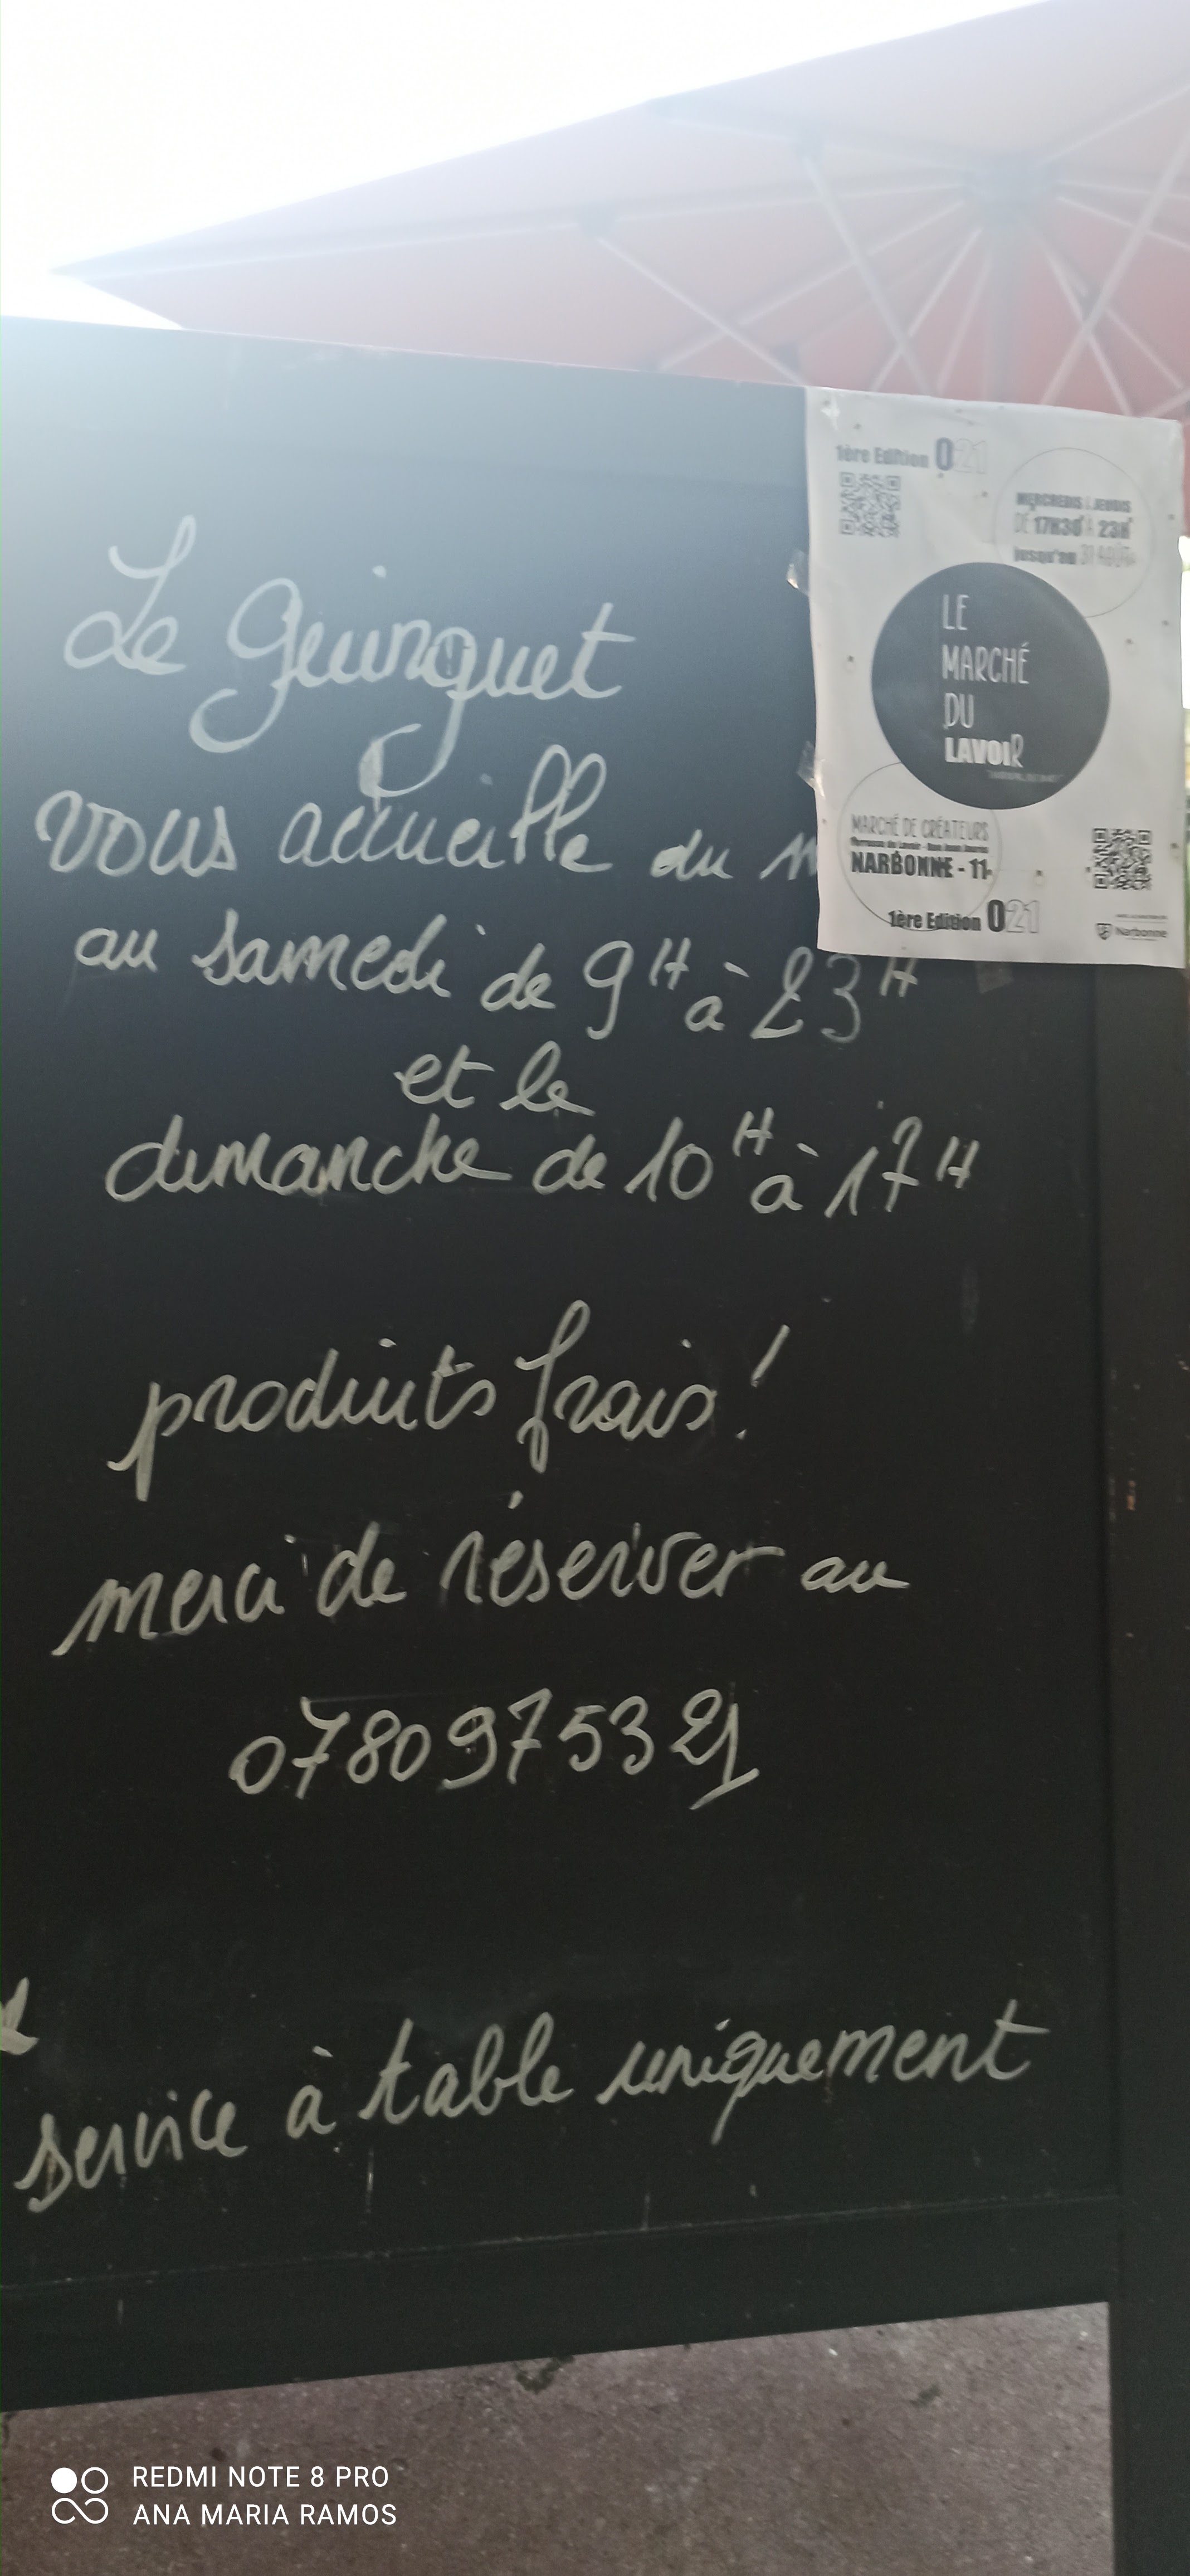 Le Guinguet
vous accueille du
au samedi de 9H à 23H
et le
dimanche de 10H à 17H
produits frais!
merci de réserver au
0780975321
service à table uniquement
1ère Edition 021
MERCREDIS & JEUDIS
DE 17H30 À 23H
jusqu'au 31 AOÛT
LE
MARCHÉ
DU
LAVOIR
MARCHÉ DE CRÉATEURS
NARBONNE - 11
1ère Edition 021
Narbonne
REDMI NOTE 8 PRO
ANA MARIA RAMOS